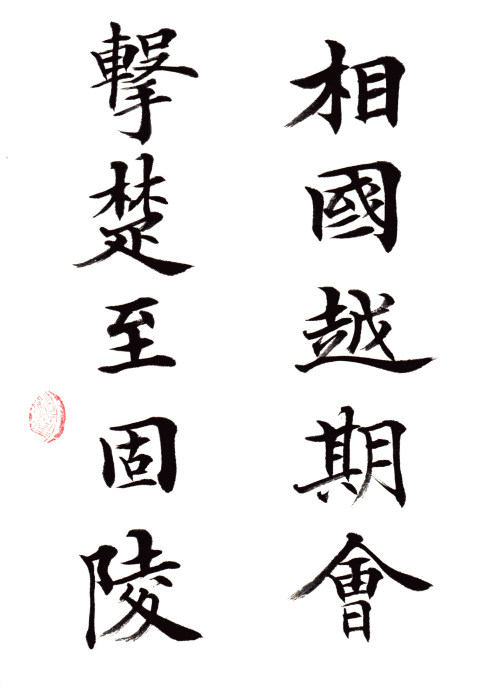 相國越期會
撃楚至固陵